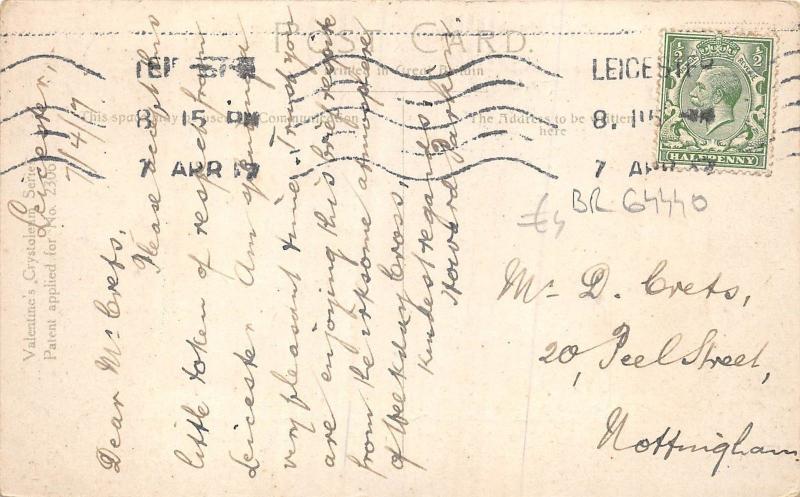 POST CARD.
Printed in Great Britain
This space may be used for Communication
The Address to be written
here
Valentine's Crystoleum Series
Patent applied for No. 2390
LEICESTER
8. 15 PM
7 APR 17
LEICESTER
8. 15 PM
7 APR 17
½ ½
HALFPENNY
BR 64440
£4
Leicester,
7/4/17
Dear Mr Crets,
Please accept this
little token of respect from
Leicester. Am having a
very pleasant time. Trust you
are enjoying this brief respite
from the irksome atmosphere
of Weekday Cross,
Kindest regards
Howard Parkin
Mr D. Crets,
20, Peel Street,
Nottingham.